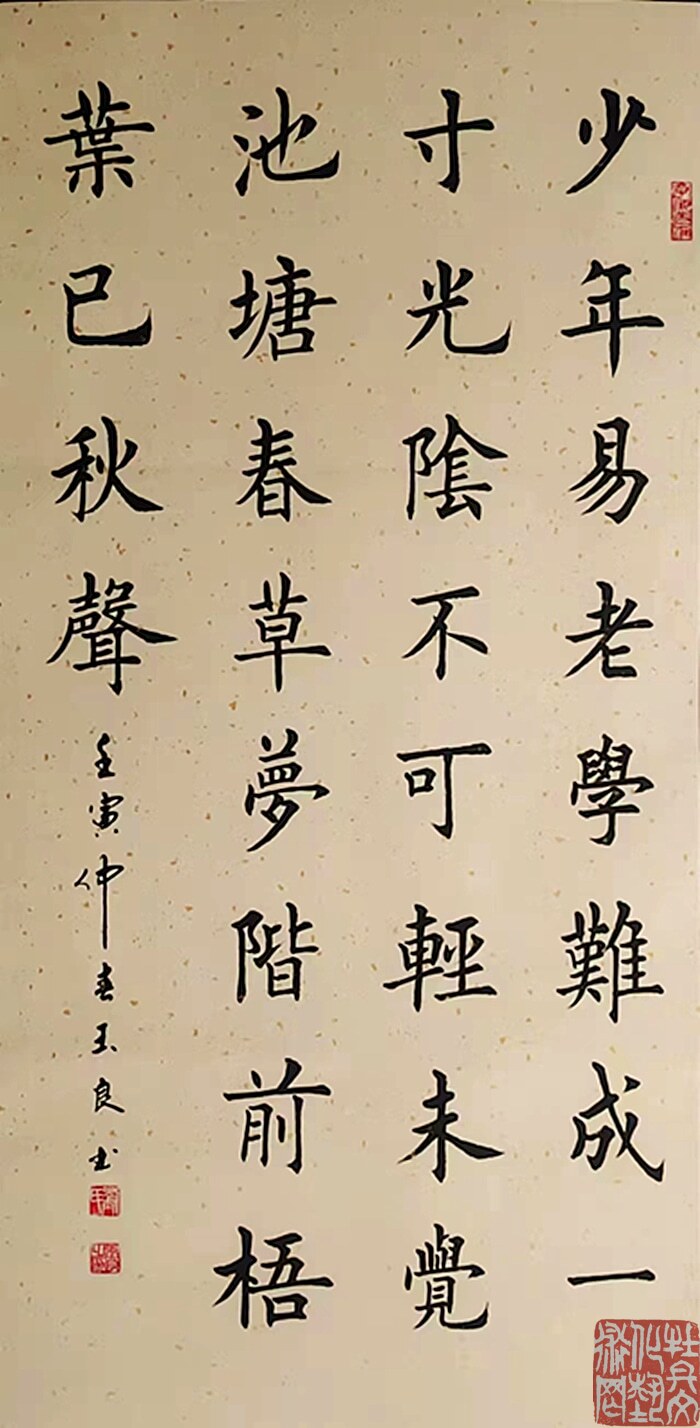 少年易老學難成一
寸光陰不可輕未覺
池塘春草夢階前梧
葉已秋聲
壬寅仲春玉良书